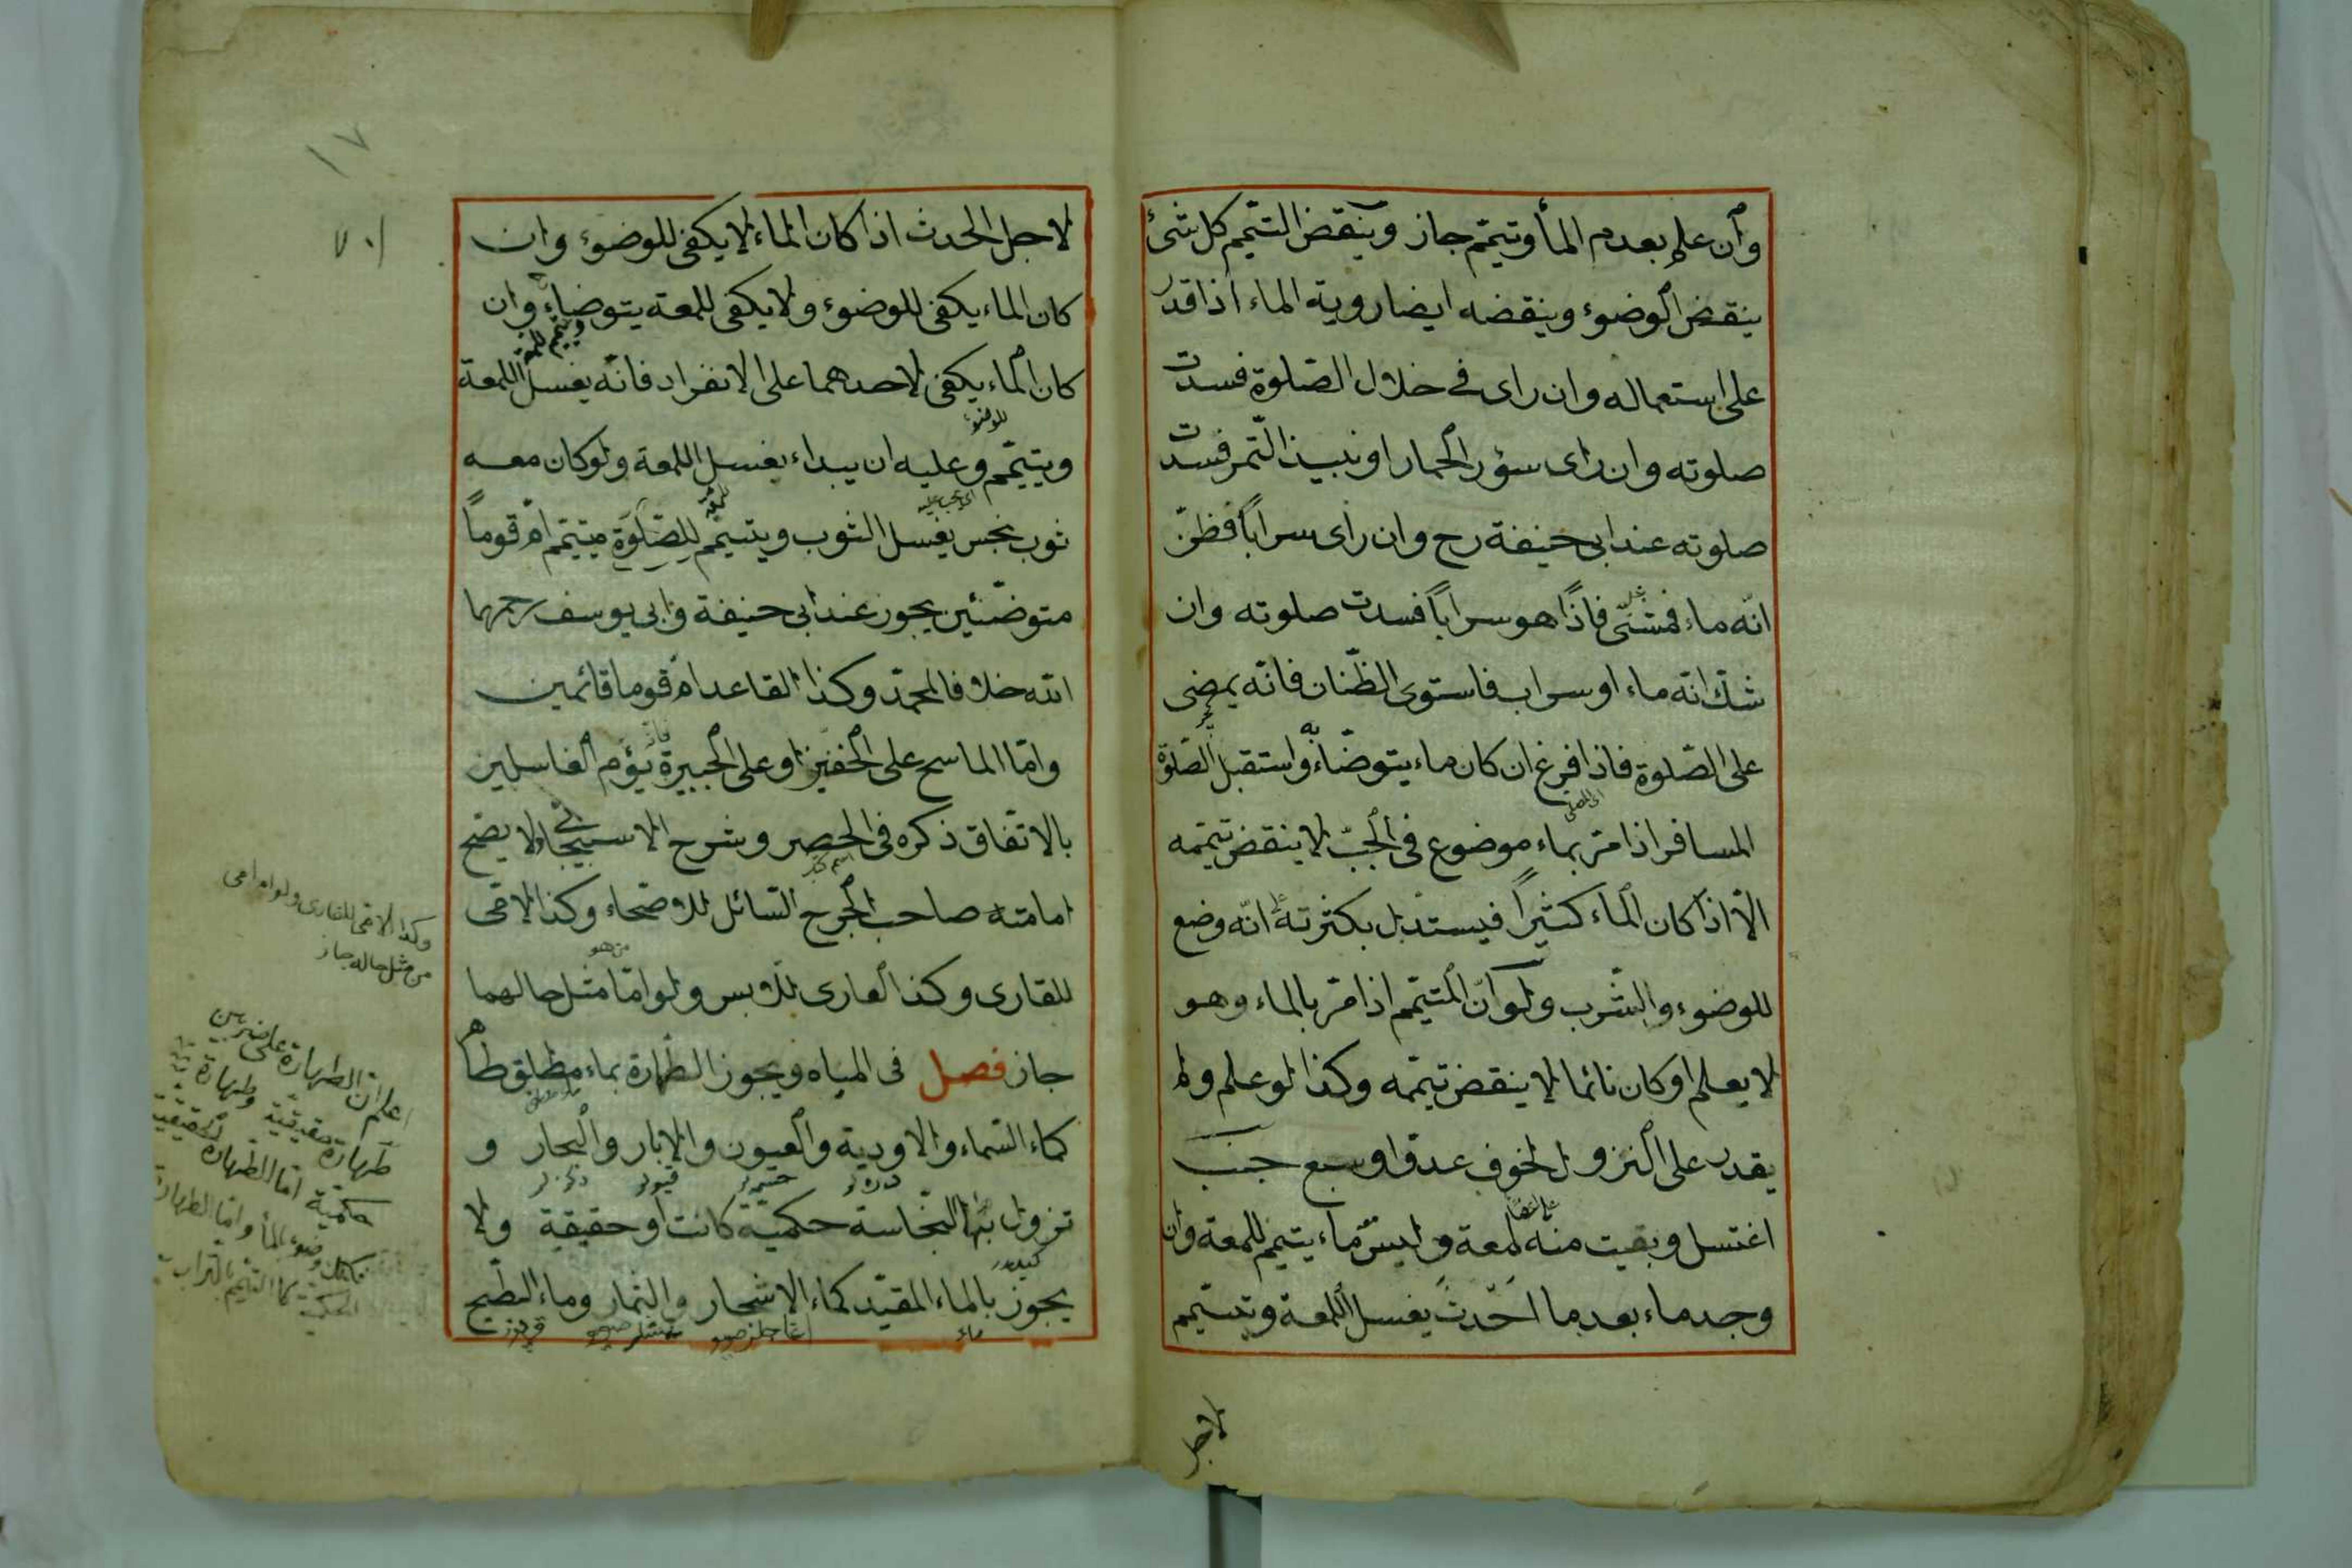 وان علم بعدم المأ وتيمّم جاز وينقض التيمّم كل شئ
ينقض الوضوء وينقضه ايضا روية الماء اذا قدر
على استعماله وان راى فى خلال الصّلوة فسدت
صلوته وان راى سؤر الحمار او نبيذ التّمر فسدت
صلوته عند ابى حنيفة رح وان راى سراباً فظنّ
انّه ماء فمشىّ فاذا هو سراباً فسدت صلوته وان
شكّ انّه ماء او سراب فاستوى الظّنان فانّه يمضى
على الصّلوة فاذا فرغ ان كان ماء يتوضّاء واستقبل الصّلوة
المسافر اذا مرّ بماء موضوع فى الجبّ لا ينقض تيمّمه
الّا اذا كان الماء كثيراً فيستدل بكثرته انّه وضع
للوضوء والشّرب ولو انّ المتيمّم اذا مرّ بالماء وهو
لا يعلم او كان نائما لا ينقض تيمّمه وكذا لو علم ولم
يقدر على النزول لخوف عدوّ او سبع جنب
اغتسل وبقيت منه لمعة وليس ماء يتيمّم للمعة وان
وجد ماء بعد ما احدث يغسل اللمعة وتيتمّم
لاجل
١٧
لاجل الحدث اذا كان الماء لا يكفى للوضوء وان
كان الماء يكفى للوضوء ولا يكفى للمعة يتوضاء وان
ويتيمم للمعة
كان الماء يكفى لاحدهما على الانفراد فانّه يغسل اللمعة
للوضوء
ويتيمّم وعليه ان يبداء بغسل اللمعة ولو كان معه
ثوب نجس يغسل الثوب ويتيمّم للصّلوة متيمّم امّ قوماً
متوضّئين يجوز عند ابى حنيفة وابى يوسف رحمهما
الله خلافا لمحمّد وكذا القاعد امّ قوما قائمين
وامّا الماسح على الخفين او على الجبيرة يؤم الغاسلين
بالاتّفاق ذكره فى الحصر وشرح الاسبيجابى ولا يصّح
امامته صاحب الجرح السّائل للاصّحاء وكذا الامّى
للقارى وكذا العارى للابس ولو امّا مثل حالهما
جاز فصل فى المياه ويجوز الطّهارة بماء مطلق طاهر
كماء السّماء والاودية والعيون والابار والبحار و
تزول بها النّجاسة حكميّة كانت او حقيقية ولا
يجوز بالماء المقيّد كماء الاشجار والثمار وماء البطّيح
وكذا الامّى للقارى ولو ام امى
من مثل حاله جاز
اعلم انّ الطهارة على ضربين
طهارة حقيقيّة وطهارة
حكميّة امّا الطهارة الحقيقية
وضوء بالمأ وامّا الطهارة
الحكمية كما التيمّم بالتراب